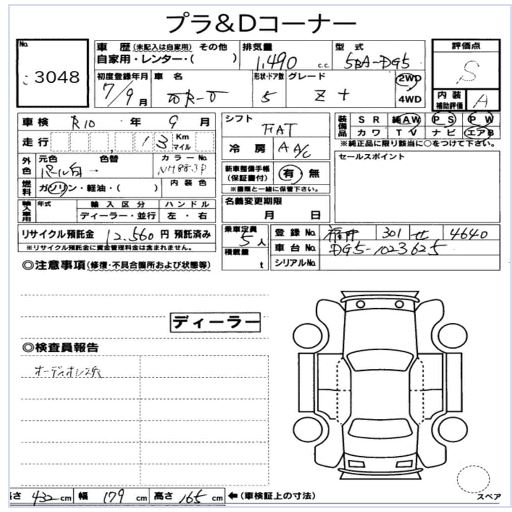 プラ&Dコーナー
No.
3048
車歴 (未記入は自家用) その他
自家用・レンター・( )
排気量
1,490 c.c
型式
5BA-DG5
評価点
S
初度登録年月
7/9月
車名
形状・ドア数
5
グレード
Z +
2WD
4WD
内装
補助評価
A
車検 R10 年 9 月
走行 13 Km
マイル
シフト
FAT
装備品
SR 純AW PS PW
カワ TV ナビ エアB
※純正品に限り該当に○をつけて下さい。
外色
元色
パール白
色替
カラーNo.
NH883P
冷房
AAC
セールスポイント
燃料
ガソリン・軽油・( )
内装色
新車整備手帳
(保証書付)
有・無
※書類と一緒に保管下さい。
輸入車用
輸入区分
ディーラー・並行
ハンドル
左・右
名義変更期限
月 日
リサイクル預託金 12,560 円 預託済み
※リサイクル預託金に資金管理料金は含まれません。
乗車定員
5人
積載量
t
登録No.
301 せ 4640
車台No.
DG5-1023625
シリアルNo.
◎注意事項 (修復・不具合箇所および状態等)
ディーラー
◎検査員報告
オーディオレス
長さ 432 cm 幅 179 cm 高さ 165 cm ←(車検証上の寸法)
スペア